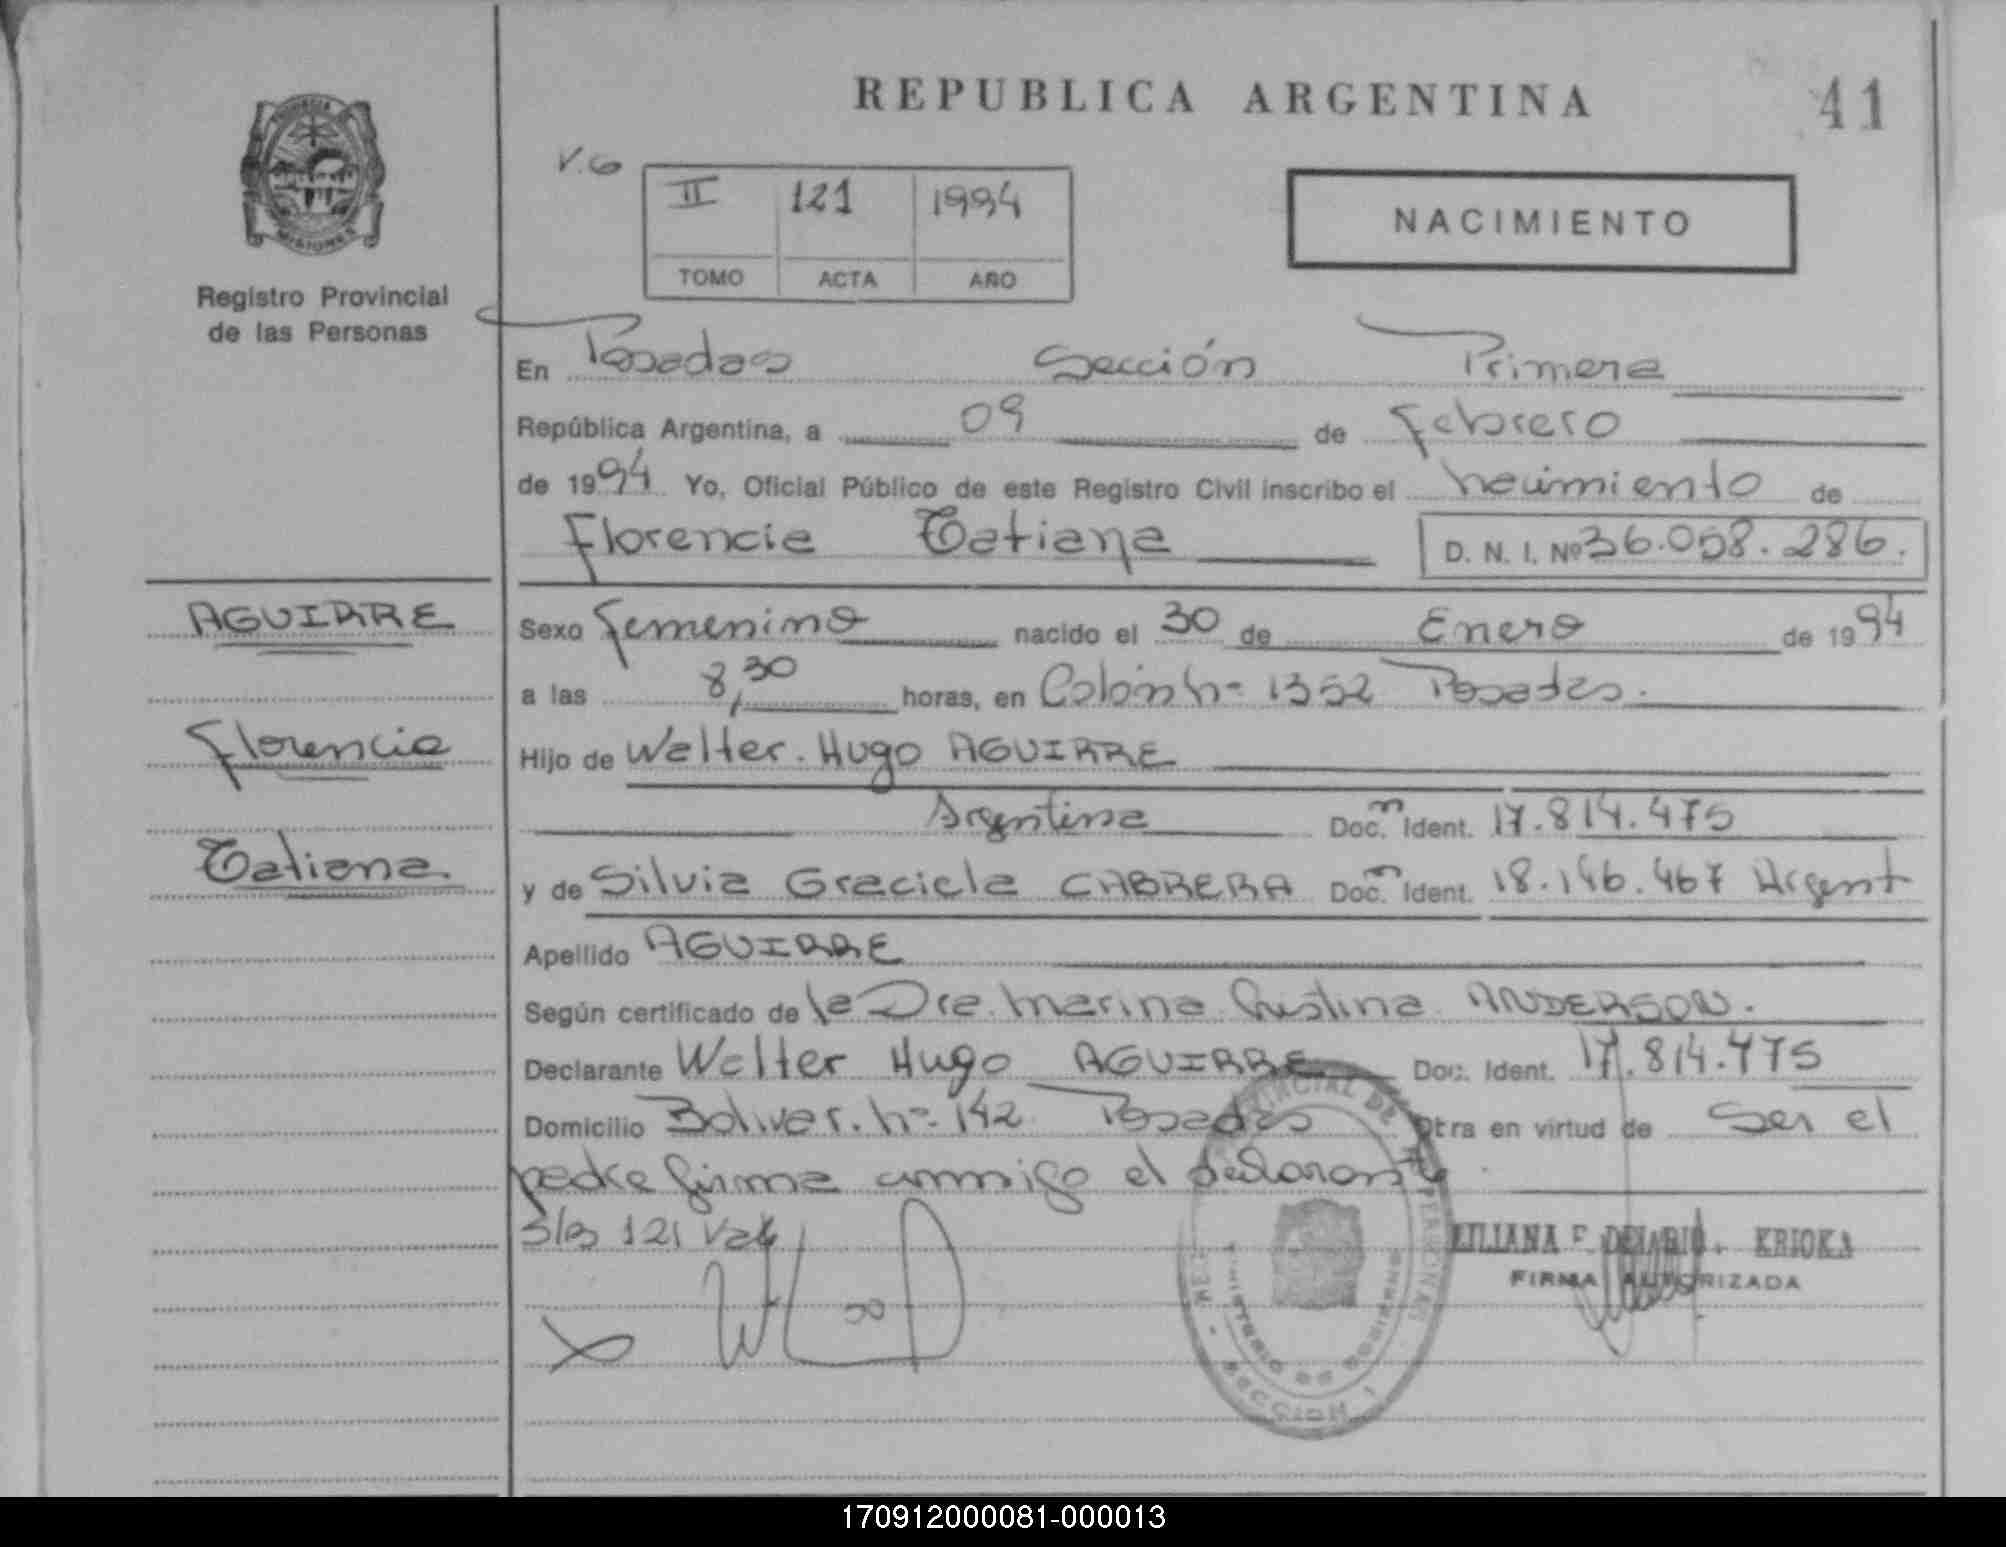 REPUBLICA ARGENTINA
41
PROVINCIA
MISIONES
Registro Provincial
de las Personas
V.G
II 121 1994
TOMO ACTA AÑO
NACIMIENTO
En Posadas Sección Primera
República Argentina, a 09 de Febrero
de 1994 Yo, Oficial Público de este Registro Civil inscribo el nacimiento de
Florencia Tatiana D. N. I. Nº 36.058.286.
AGUIRRE
Florencia
Tatiana.
Sexo Femenino nacido el 30 de Enero de 1994
a las 8,30 horas, en Colón nº 1352 Posadas.
Hijo de Walter Hugo AGUIRRE
Argentina Doc. Ident. 17.814.475
y de Silvia Graciela CABRERA Doc. Ident. 18.146.467 Argent
Apellido AGUIRRE
Según certificado de la Dra. Marina Cristina ANDERSON.
Declarante Walter Hugo AGUIRRE Doc. Ident. 17.814.475
Domicilio Bolivar nº 142 Posadas Otra en virtud de Ser el
padre firma conmigo el declarante
S/B 121 Vale
LILIANA F. KRIOKA
FIRMA AUTORIZADA
PROVINCIAL DE LAS PERSONAS
MINISTERIO DE GOBIERNO
SECCION 1
170912000081-000013